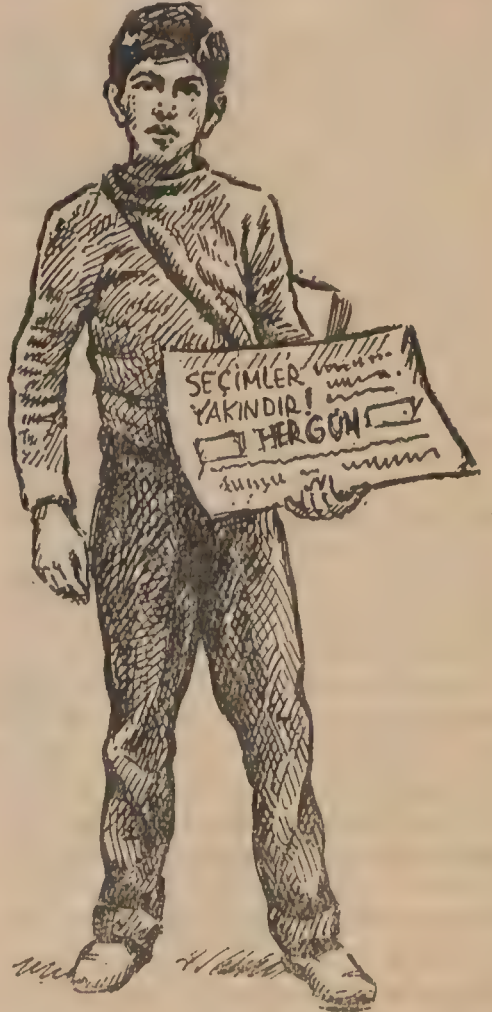 SEÇİMLER
YAKINDIR!
HERGÜN